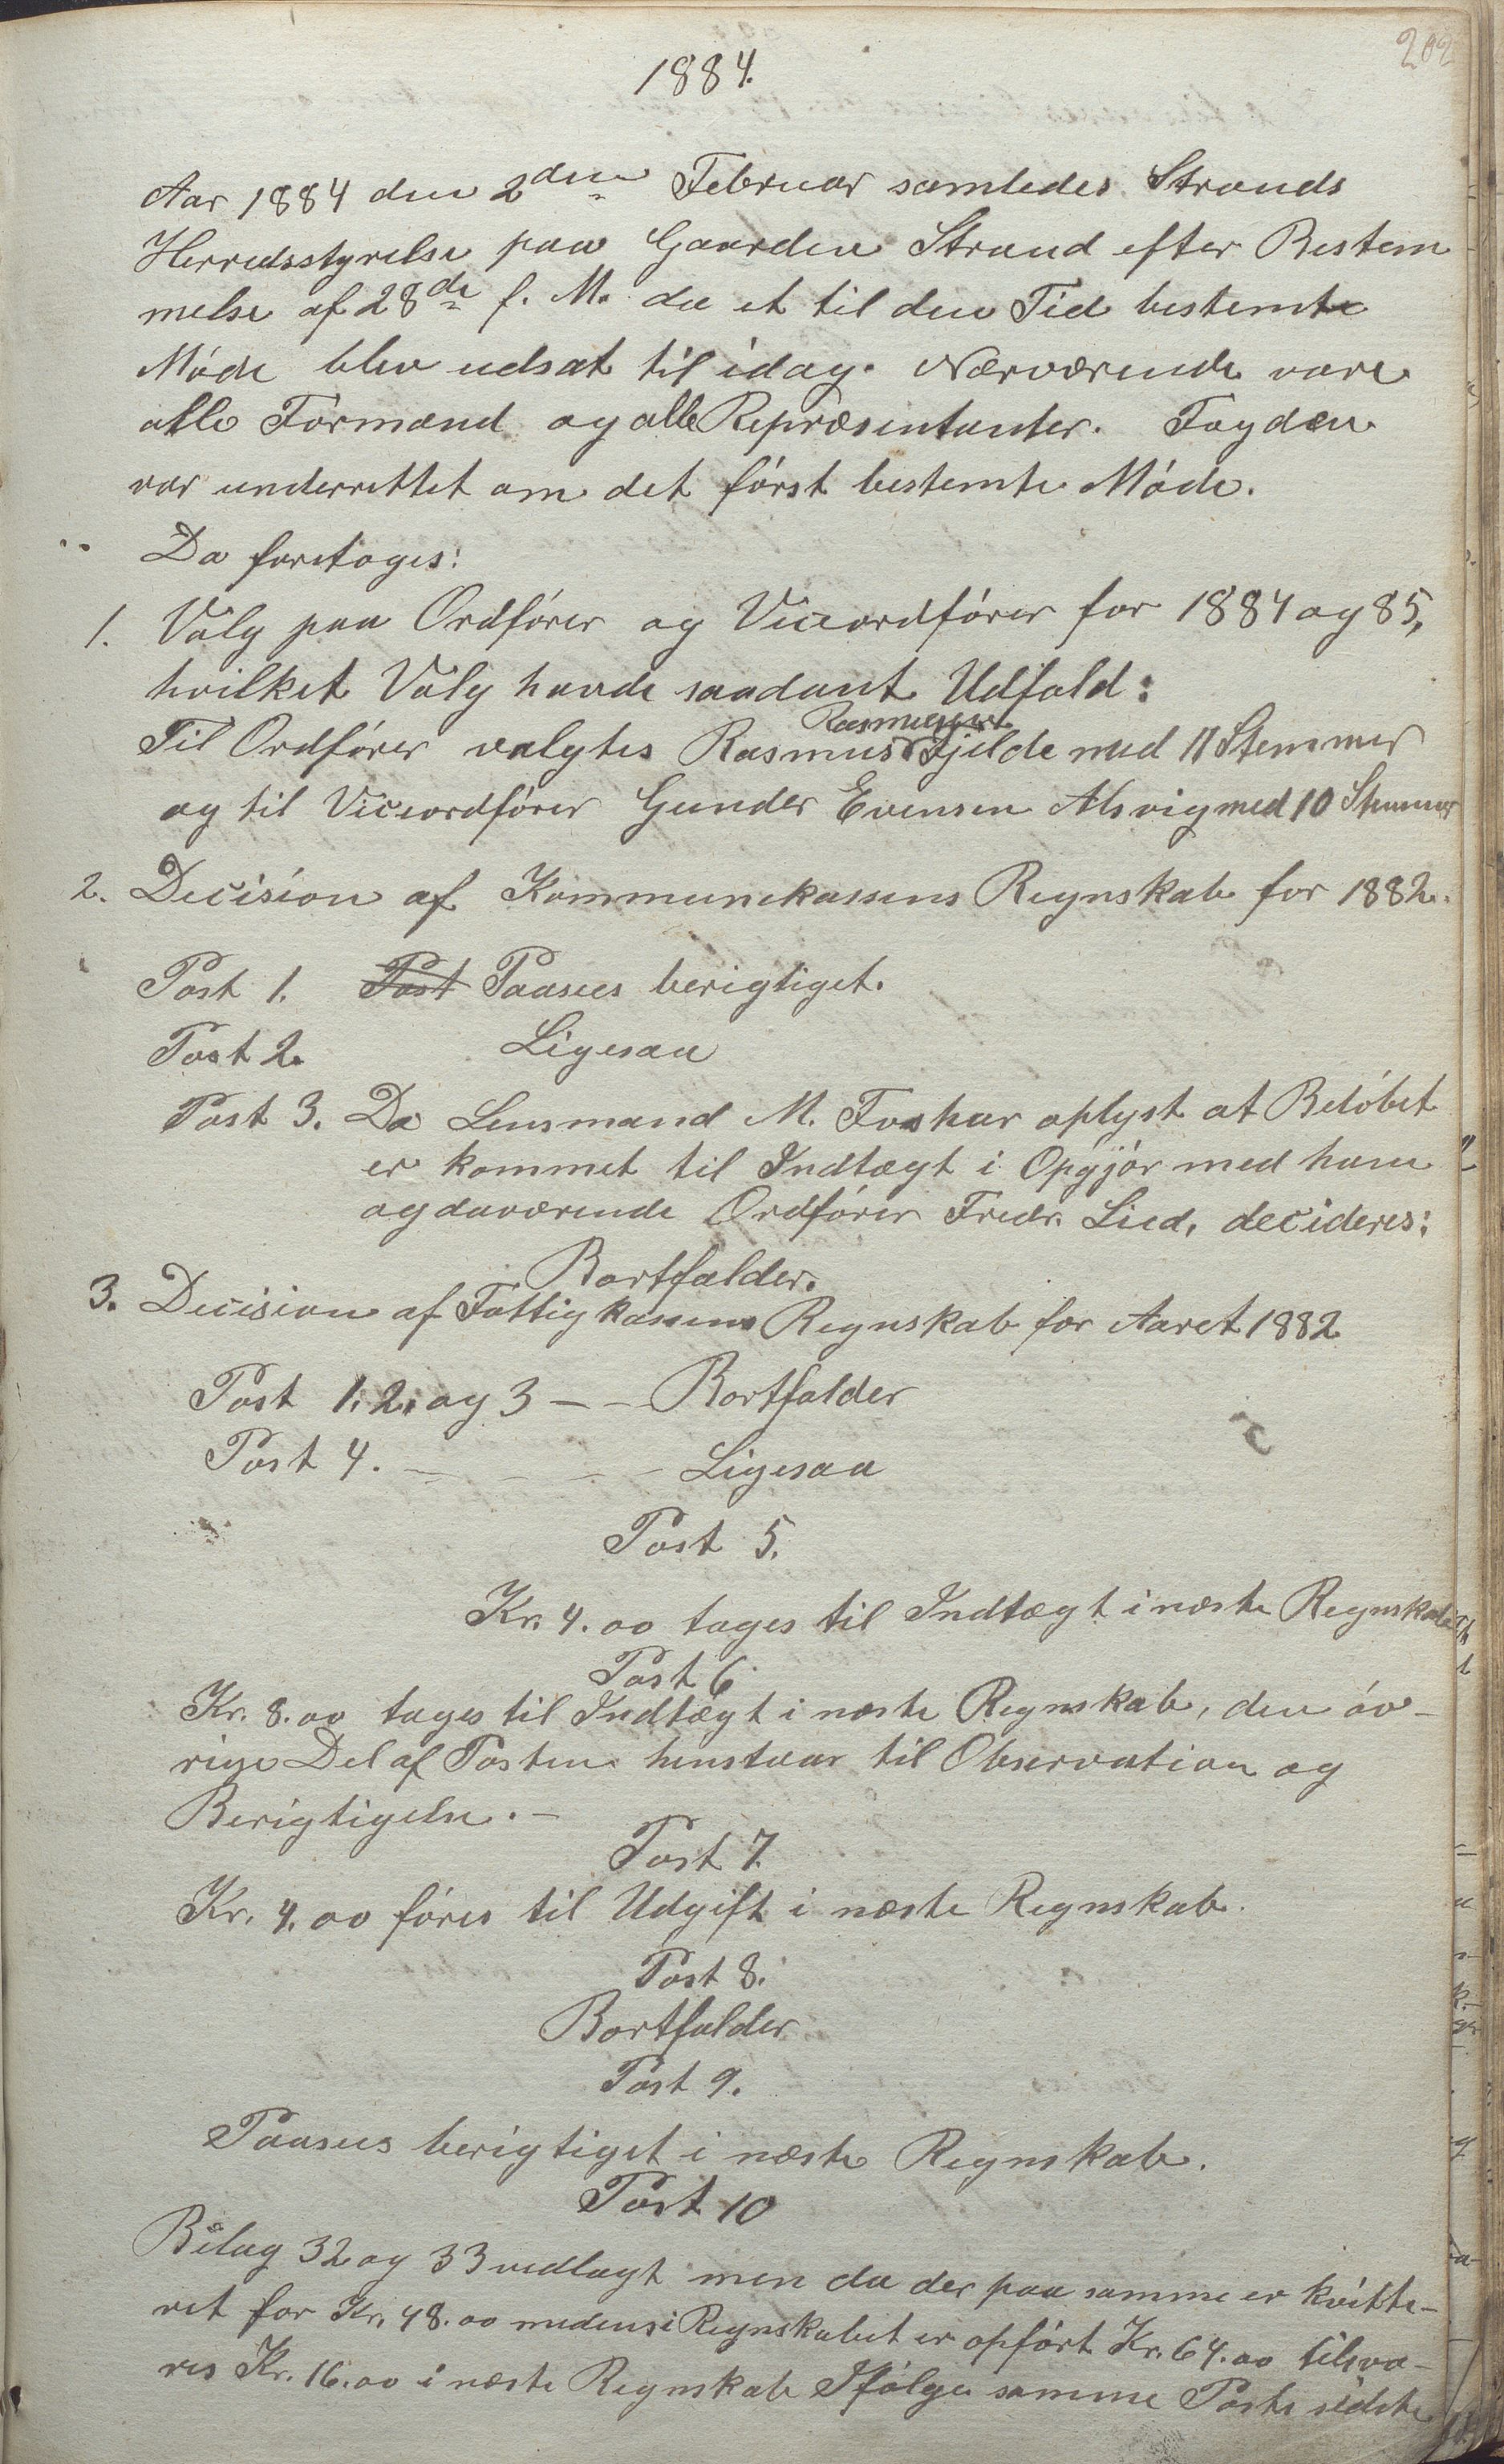 202
1884.
Aar 1884 den 2den Februar samledes Strands
Herredsstyrelse paa Gaarden Strand efter Bestem
melse af 28de f. M. da et til den Tid bestemte
Møde blev udsat til idag. Nærværende vare
alle Formænd og alle Repræsentanter. Fogden
var underrettet om det først bestemte Møde.
Da foretoges:
1. Valg paa Ordfører og Viceordfører for 1884 og 85,
hvilket Valg havde saadant Udfald:
Rasmussen
Til Ordfører valgtes Rasmus Fjelde med 11 Stemmer
og til Viceordfører Gunder Evensen Alsvig med 10 Stemmer
2. Decision af Kommunekassens Regnskab for 1882.
Post 1. Post Paasees berigtiget.
Post 2. Ligesaa
Post 3. Da Lensmand M. Foshar oplyst at Beløbet
er kommet til Indtægt i Opgjør med ham
og daværende Ordfører Fredr. Lied, decideres:
Bortfalder.
3. Decision af Fattigkassens Regnskab for Aaret 1882
Post 1, 2, og 3 – – Bortfalder
Post 4. – – – – Ligesaa
Post 5.
Kr. 4.00 tages til Indtægt i næste Regnskab
Post 6
Kr. 8.00 tages til Indtægt i næste Regnskab, den øv-
rige Del af Posten henstaar til Observation og
Berigtigelse. –
Post 7.
Kr. 4.00 føres til Udgift i næste Regnskab.
Post 8.
Bortfalder
Post 9.
Paasees berigtiget i næste Regnskab.
Post 10
Bilag 32 og 33 vedlagt men da der paa samme er kvitte-
ret for Kr. 48.00 medens i Regnskabet er opført Kr. 64.00 tilsva-
res Kr. 16.00 i næste Regnskab Ifølge samme Posts sidste